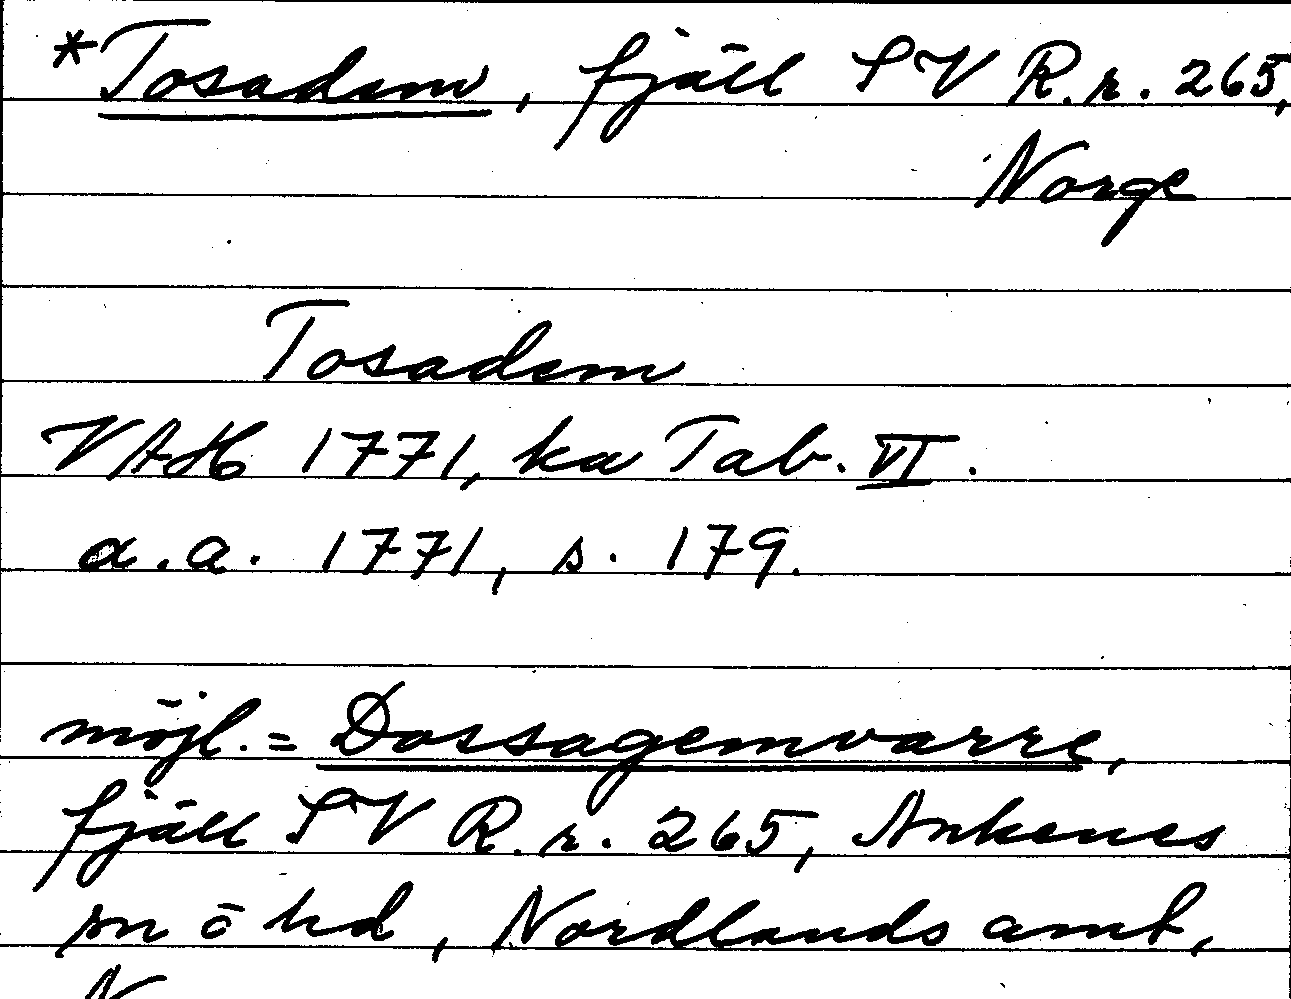 *Tosadem, fjäll SV R.r. 265,
Norge
Tosadem
VAH 1771, ka Tab. VI.
a.a. 1771, s. 179.
möjl. = Dossagemvarre,
fjäll SV R.r. 265, Ankenes
sn o hd, Nordlands amt,